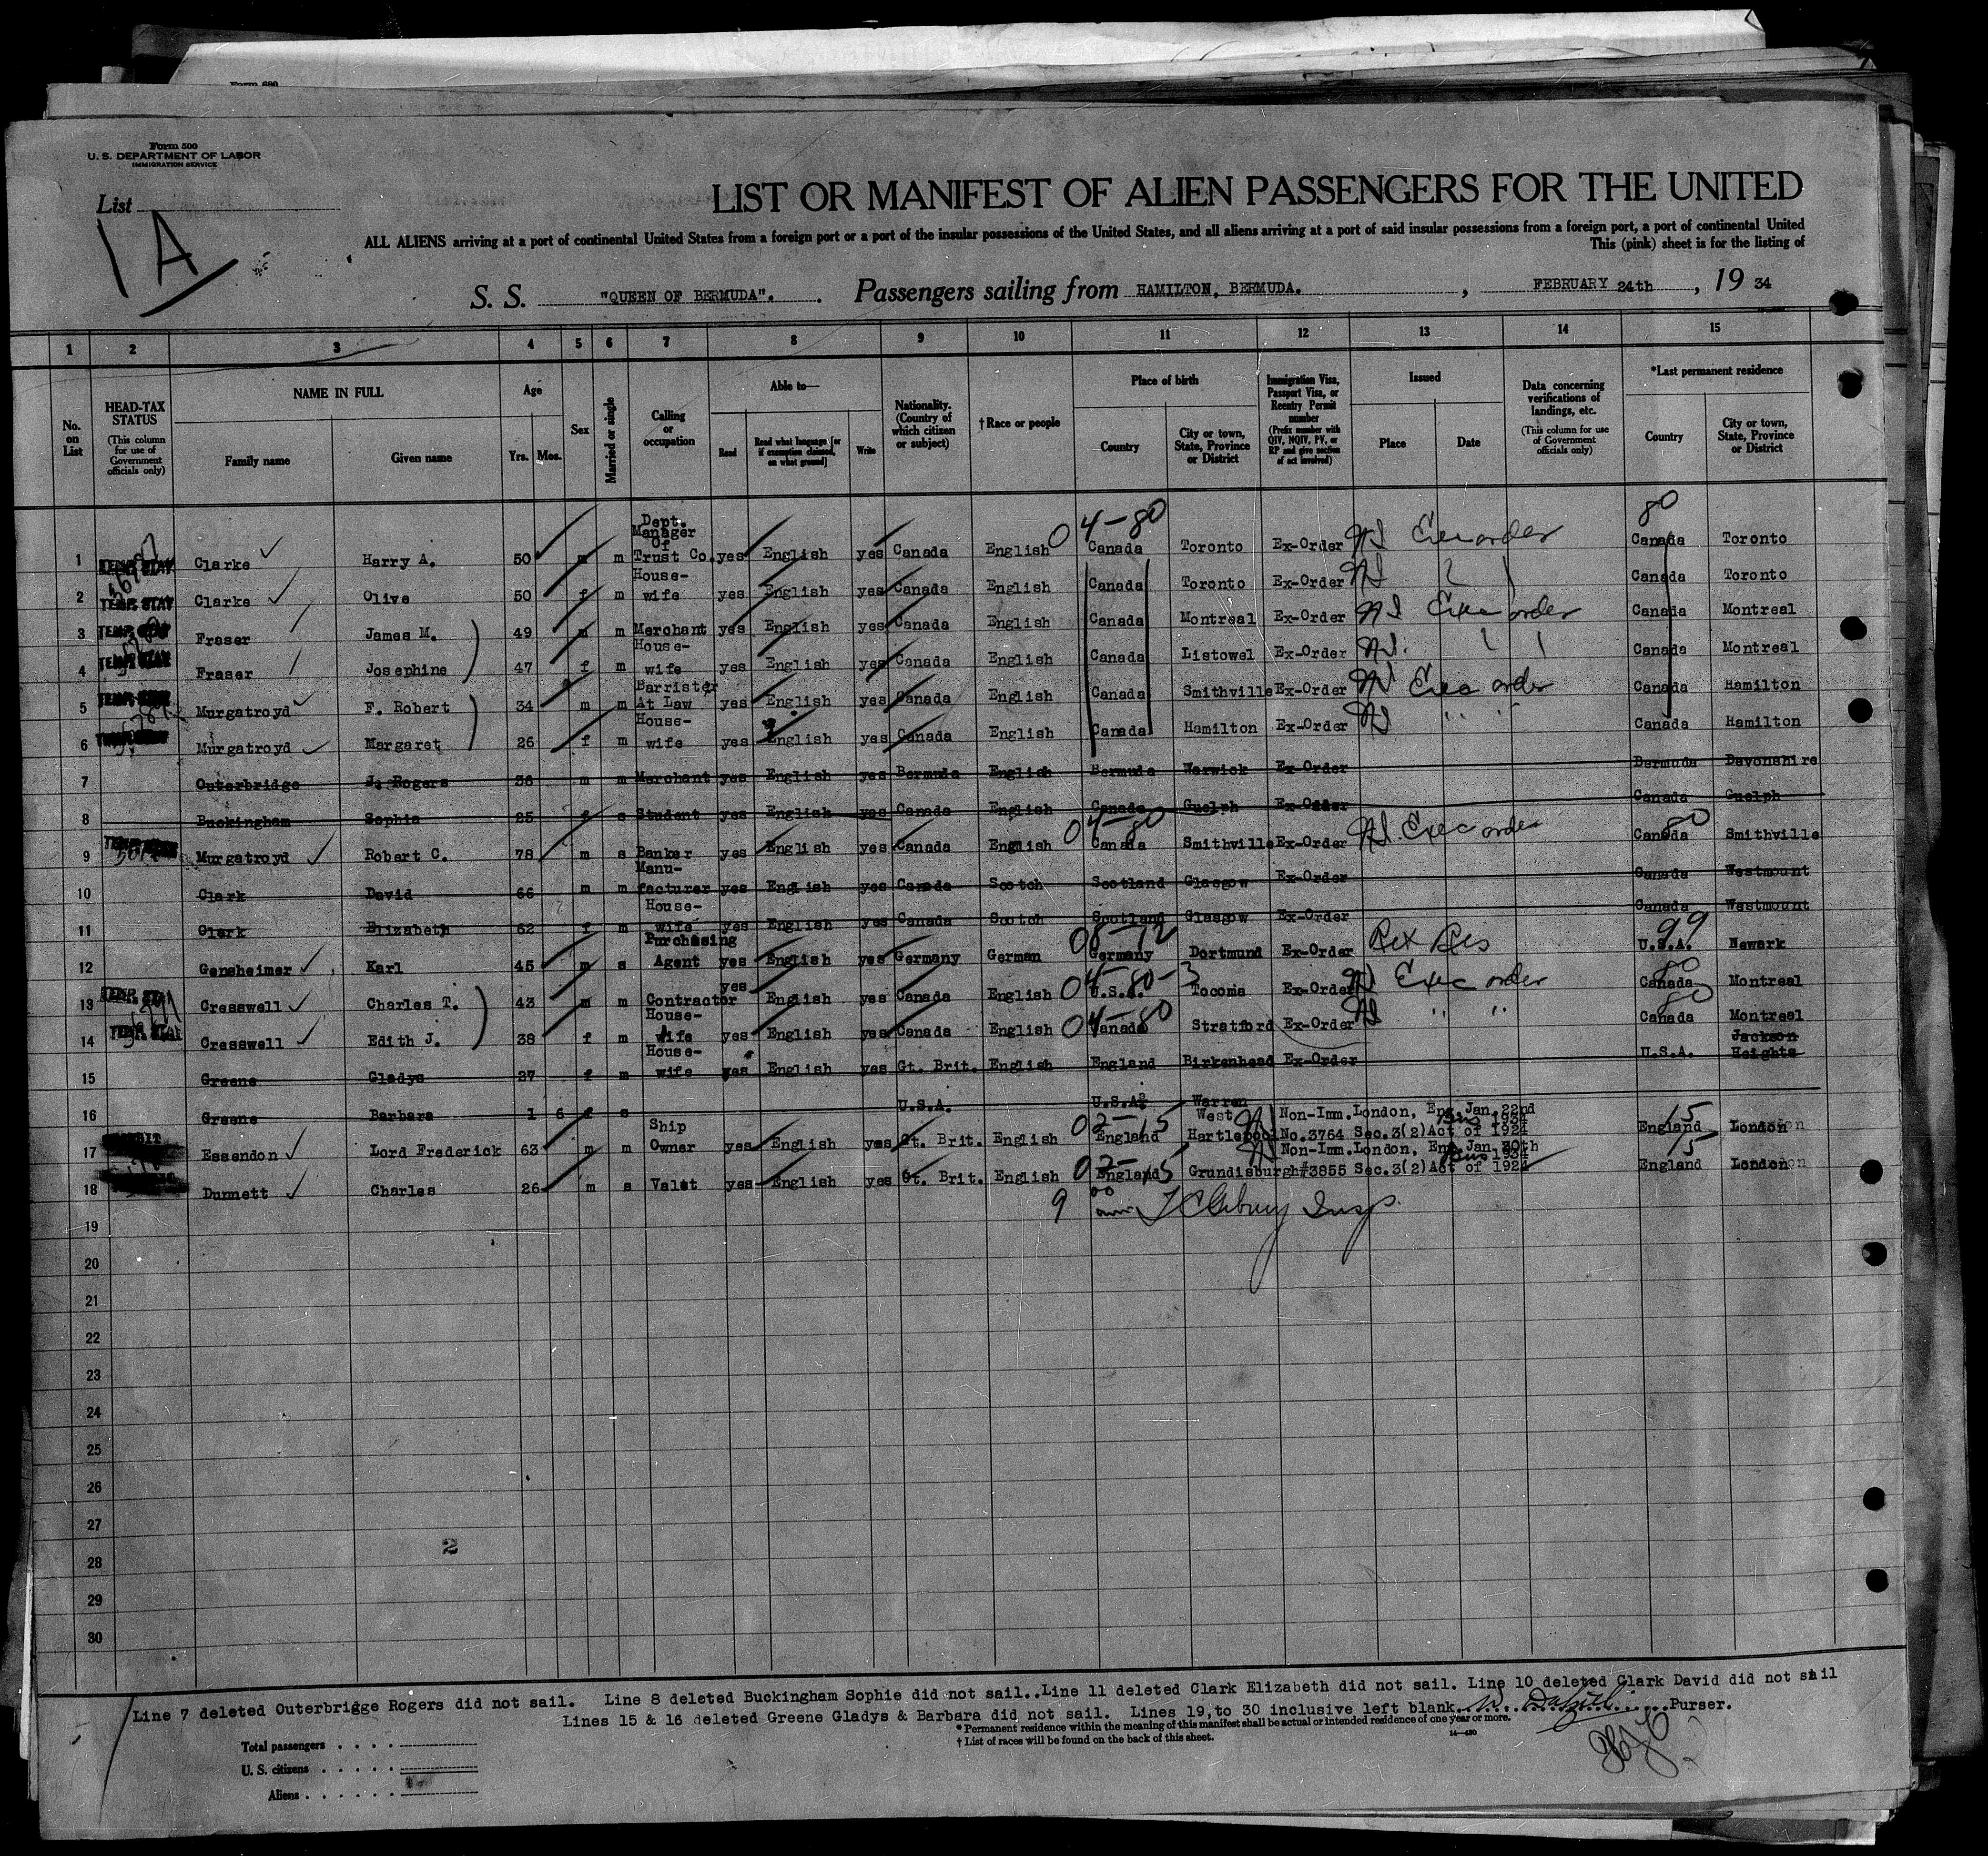 Form 630
Form 500
U. S. DEPARTMENT OF LABOR
IMMIGRATION SERVICE
List
1A
LIST OR MANIFEST OF ALIEN PASSENGERS FOR THE UNITED
ALL ALIENS arriving at a port of continental United States from a foreign port or a port of the insular possessions of the United States, and all aliens arriving at a port of said insular possessions from a foreign port, a port of continental United
This (pink) sheet is for the listing of
S. S. "QUEEN OF BERMUDA". Passengers sailing from HAMILTON, BERMUDA. , FEBRUARY 24th , 19 34
1 2 3 4 5 6 7 8 9 10 11 12 13 14 15
No. on List
HEAD-TAX STATUS (This column for use of Government officials only)
NAME IN FULL Family name Given name
Age Yrs. Mos.
Sex
Married or single
Calling or occupation
Able to— Read Read what language [or if exemption claimed, on what ground] Write
Nationality. (Country of which citizen or subject)
†Race or people
Place of birth Country City or town, State, Province or District
Immigration Visa, Passport Visa, or Reentry Permit number (Prefix number with QIV, NQIV, PV, or RP and give section of act involved)
Issued Place Date
Data concerning verifications of landings, etc. (This column for use of Government officials only)
*Last permanent residence Country City or town, State, Province or District
04-80 80
1 TEMP. STAY Clarke Harry A. 50 m m Dept. Manager Of Trust Co. yes English yes Canada English Canada Toronto Ex-Order Exec order Canada Toronto
2 TEMP. STAY Clarke Olive 50 f m House-wife yes English yes Canada English Canada Toronto Ex-Order Canada Toronto
3 TEMP. STAY Fraser James M. 49 m m Merchant yes English yes Canada English Canada Montreal Ex-Order Exec order Canada Montreal
4 TEMP. STAY Fraser Josephine 47 f m House-wife yes English yes Canada English Canada Listowel Ex-Order Canada Montreal
5 TEMP. STAY Murgatroyd F. Robert 34 m m Barrister At Law yes English yes Canada English Canada Smithville Ex-Order Exec order Canada Hamilton
6 TEMP. STAY Murgatroyd Margaret 26 f m House-wife yes English yes Canada English Canada Hamilton Ex-Order " " Canada Hamilton
7 Outerbridge J. Rogers 36 m m Merchant yes English yes Bermuda English Bermuda Warwick Ex-Order Bermuda Devonshire
8 Buckingham Sophia 25 f s Student yes English yes Canada English Canada Guelph Ex-Order Canada Guelph
04-80 80
9 Murgatroyd Robert C. 78 m s Banker yes English yes Canada English Canada Smithville Ex-Order Exec order Canada Smithville
10 Clark David 66 m m Manu-facturer yes English yes Canada Scotch Scotland Glasgow Ex-Order Canada Westmount
11 Clark Elizabeth 62 f m House-wife yes English yes Canada Scotch Scotland Glasgow Ex-Order Canada Westmount
99
12 Gensheimer Karl 45 m s Purchasing Agent yes English yes Germany German Germany Dortmund Ex-Order U.S.A. Newark
04-80-3 80
13 TEMP. STAY Cresswell Charles T. 43 m m Contractor yes English yes Canada English U.S.A. Tocoma Ex-Order Exec order Canada Montreal
04-80 80
14 TEMP. STAY Cresswell Edith J. 38 f m House-wife yes English yes Canada English Canada Stratford Ex-Order " " Canada Montreal
15 Greene Gladys 27 f m House-wife yes English yes Gt. Brit. English England Birkenhead Ex-Order U.S.A. Jackson Heights
16 Greene Barbara 1 6 f s U.S.A. U.S.A. Warren
02-15 15
17 Essendon Lord Frederick 63 m m Ship Owner yes English yes Gt. Brit. English England West Hartlepool Non-Imm. London, Eng. Jan. 22nd 1934 No. 3764 Sec. 3(2) Act of 1924 England London
02-15 15
18 Dunnett Charles 26 m s Valet yes English yes Gt. Brit. English England Grundisburgh Non-Imm. London, Eng. Jan. 30th 1934 #3855 Sec. 3(2) Act of 1924 England London
9 00 Insp.
19
20
21
22
23
24
25
26
27
28
29
30
2
Line 7 deleted Outerbrigge Rogers did not sail. Line 8 deleted Buckingham Sophie did not sail..Line 11 deleted Clark Elizabeth did not sail. Line 10 deleted Clark David did not sail
Lines 15 & 16 deleted Greene Gladys & Barbara did not sail. Lines 19,to 30 inclusive left blank. Purser.
*Permanent residence within the meaning of this manifest shall be actual or intended residence of one year or more.
†List of races will be found on the back of this sheet. 14—430
Total passengers
U. S. citizens
Aliens